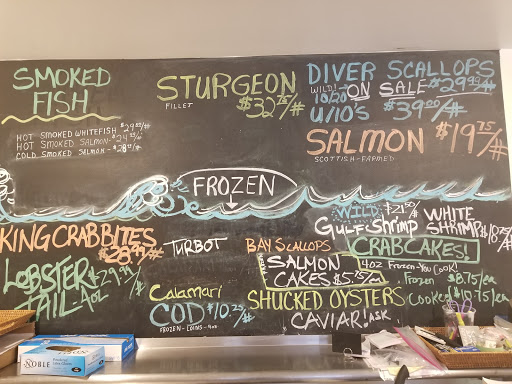 SMOKED
FISH
HOT SMOKED WHITEFISH
HOT SMOKED SALMON
COLD SMOKED SALMON
STURGEON
FILLET
$32.75/#
DIVER SCALLOPS
WILD!
10/20 ON SALE $29.99/#
U/10's $39.00/#
SALMON $19.75/#
SCOTTISH-FARMED
FROZEN
KING CRAB BITES
$28.99/#
LOBSTER
TAIL 4oz
$29.99/#
TURBOT
Calamari
COD $10.75/#
BAY SCALLOPS
SALMON
CAKES $5.75/ea
SHUCKED OYSTERS
CAVIAR! ASK
WILD $21.50/#
Gulf Shrimp
WHITE
SHRIMP
CRABCAKES!
4oz Frozen-You Cook!
Frozen $8.75/ea
Cooked $10.75/ea
NOBLE